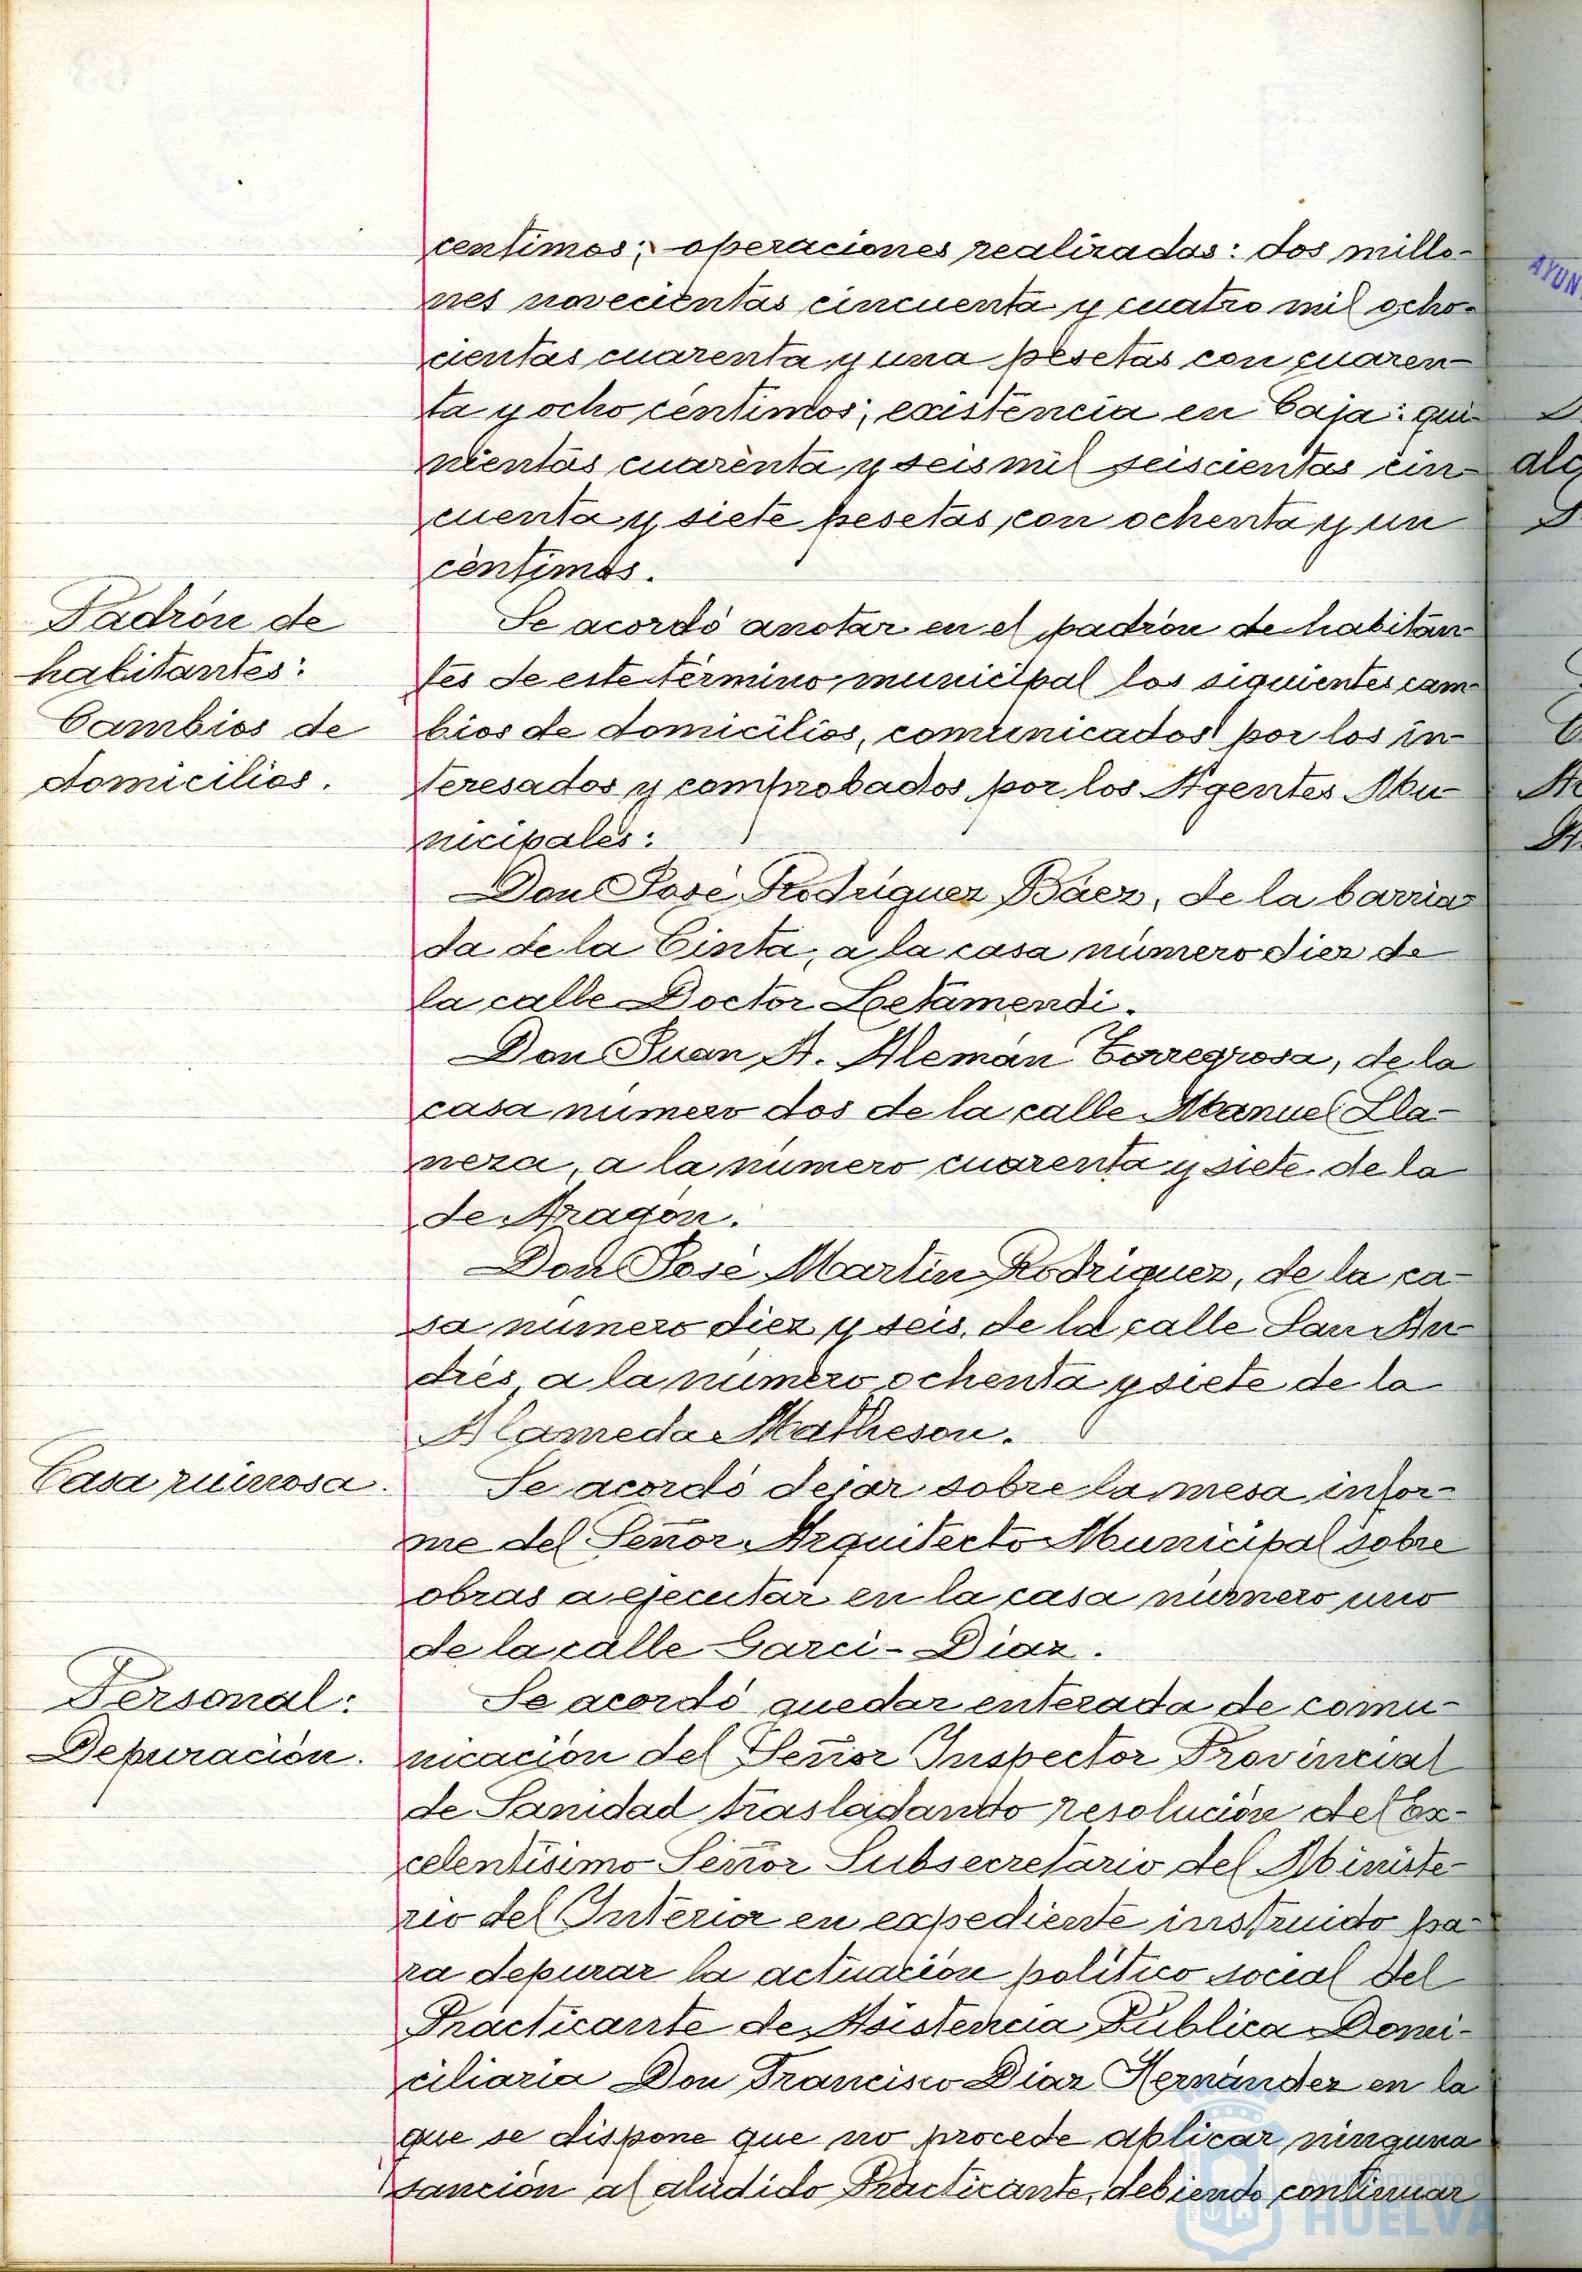 centimos; operaciones realizadas: dos millo-
nes novecientas cincuenta y cuatro mil ocho-
cientas cuarenta y una pesetas con cuaren-
ta y ocho céntimos; existencia en Caja: qui-
nientas cuarenta y seis mil seiscientas cin-
cuenta y siete pesetas, con ochenta y un
céntimos.
Padrón de
habitantes:
Cambios de
domicilios.
Se acordó anotar en el padrón de habitan-
tes de este término municipal los siguientes cam-
bios de domicilios, comunicados por los in-
teresados y comprobados por los Agentes Mu-
nicipales:
Don José Rodríguez Báez, de la barria-
da de la Cinta, a la casa número diez de
la calle Doctor Letamendi.
Don Juan A. Alemán Torregrosa, de la
casa número dos de la calle Manuel Lla-
neza, a la número cuarenta y siete de la
de Aragón.
Don José Martín Rodriguez, de la ca-
sa número diez y seis, de la calle San An-
drés, a la número ochenta y siete de la
Alameda Matheson.
Casa ruinosa.
Se acordó dejar sobre la mesa infor-
me del Señor Arquitecto Municipal sobre
obras a ejecutar en la casa número uno
de la calle Garci-Díaz.
Personal:
Depuración.
Se acordó quedar enterada de comu-
nicación del Señor Inspector Provincial
de Sanidad trasladando resolución del Ex-
celentísimo Señor Subsecretario del Ministe-
rio del Interior en expediente instruido pa-
ra depurar la actuación político social del
Practicante de Asistencia Pública Domi-
ciliaria Don Francisco Díaz Hernández en la
que se dispone que no procede aplicar ninguna
sanción al aludido Practicante, debiendo continuar
Ayuntamiento de
HUELVA